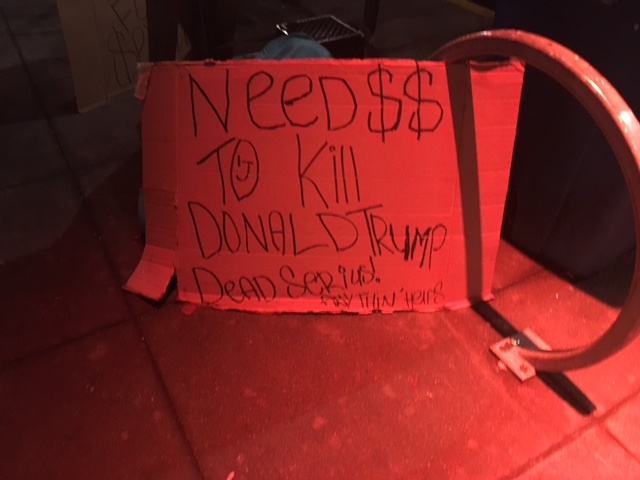 NeeD $$
TO Kill
DONALD TRUMP
DeAD SeRiUS!
ANY THIN' HeLPS